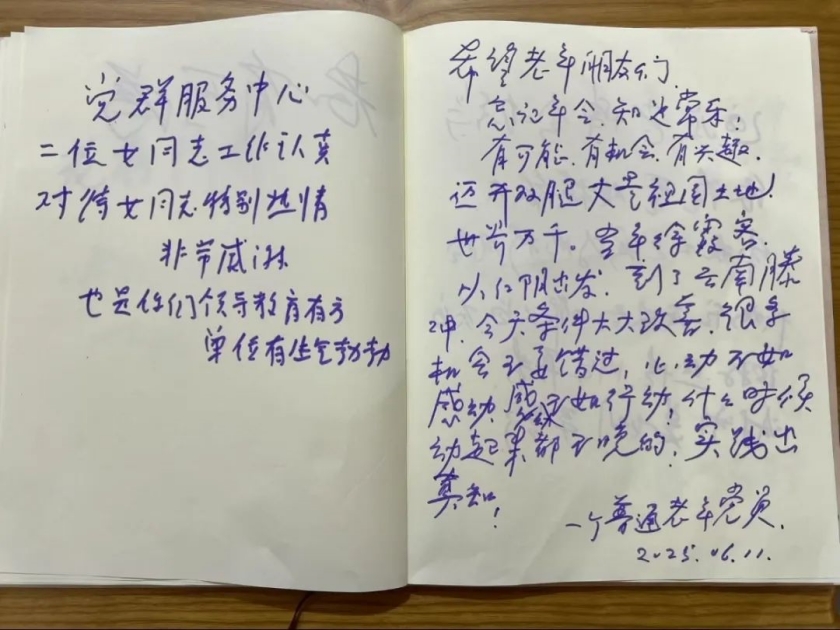 党群服务中心
二位女同志工作认真
对待女同志特别热情
非常感谢
也是你们领导教育有方
单位有生气勃勃
希望老年朋友们
忘记年令.知足常乐!
有可能.有机会.有兴趣.
迈开双腿丈量祖国土地!
世界万千。当年徐霞客.
从江阴出发.到了云南腾
冲.今天条件大大改善.很多
机会不要错过,心动不如
感动.感动不如行动!什么时候
动起来都不晚的.实践出
真知!
一个普通老年党员.
2025.06.11.